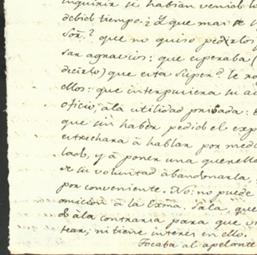 inquirir si habian venido
debido tiempo? Y que mas
Sor.? que no quiso pedirlos
sar agravios: que esperaba
decirlo) que esta Super.
ellos: que interpusiera su
oficio, á la utilidad privada:
que sin haber pedido el exp
estrechara á hablar por med
lado, y á poner una querella
de su voluntad abandonarla,
por conveniente. No: no puede
omision á la Exma. Sala, que
do á la contraria para que
tear; ni tiene interes en ello.
Tocaba al apelante